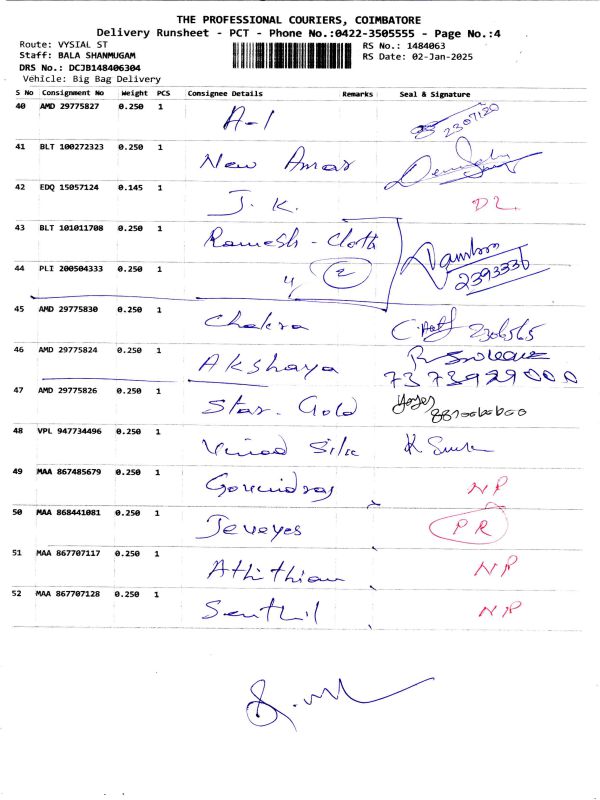 THE PROFESSIONAL COURIERS, COIMBATORE
Delivery Runsheet - PCT - Phone No.:0422-3505555 - Page No.:4
Route: VYSIAL ST
RS No.: 1484063
Staff: BALA SHANMUGAM
RS Date: 02-Jan-2025
DRS No.: DCJB148406304
Vehicle: Big Bag Delivery
S No Consignment No Weight PCS Consignee Details Remarks Seal & Signature
40 AMD 29775827 0.250 1 A-1 2307120
41 BLT 100272323 0.250 1 New Amar
42 EDQ 15057124 0.145 1 J. K. DL
43 BLT 101011708 0.250 1 Ramesh - Cloth
44 PLI 200504333 0.250 1 " 2 2393336
45 AMD 29775830 0.250 1 Chakra 2306565
46 AMD 29775824 0.250 1 Akshaya
7373929000
47 AMD 29775826 0.250 1 Star. Gold
48 VPL 947734496 0.250 1 Vinod Silk
49 MAA 867485679 0.250 1 Govindraj NP
50 MAA 868441081 0.250 1 Jeveyes PR
51 MAA 867707117 0.250 1 Athithian NP
52 MAA 867707128 0.250 1 Senthil NP